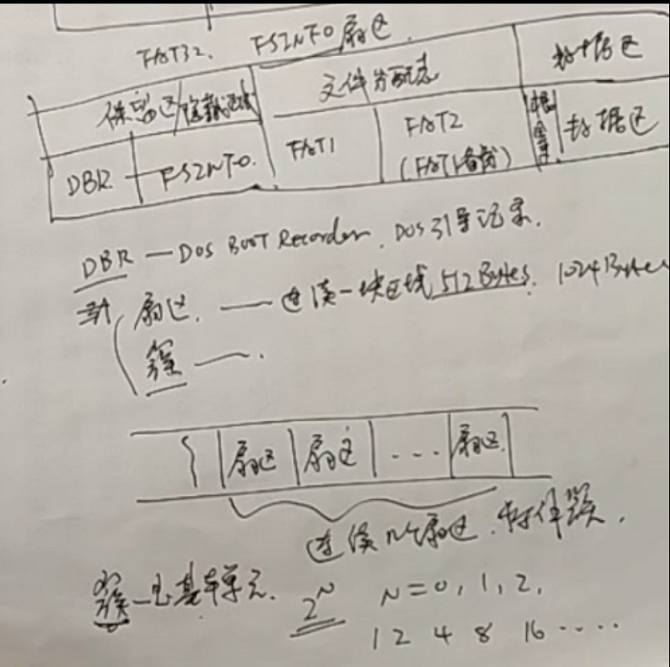 FAT32. FSINFO扇区
保留区/隐藏区域 文件分配表 数据区
DBR FSINFO. FAT1 FAT2 (FAT1备份) 根目录 数据区
DBR — DOS BOOT Recorder. DOS引导记录.
扇区. —— 连续一块区域 512Bytes. 1024Bytes
簇 ——.
扇区 扇区 ... 扇区
连续几个扇区. 称作簇.
簇 — 基本单元. 2^N N=0, 1, 2,
1 2 4 8 16 ....